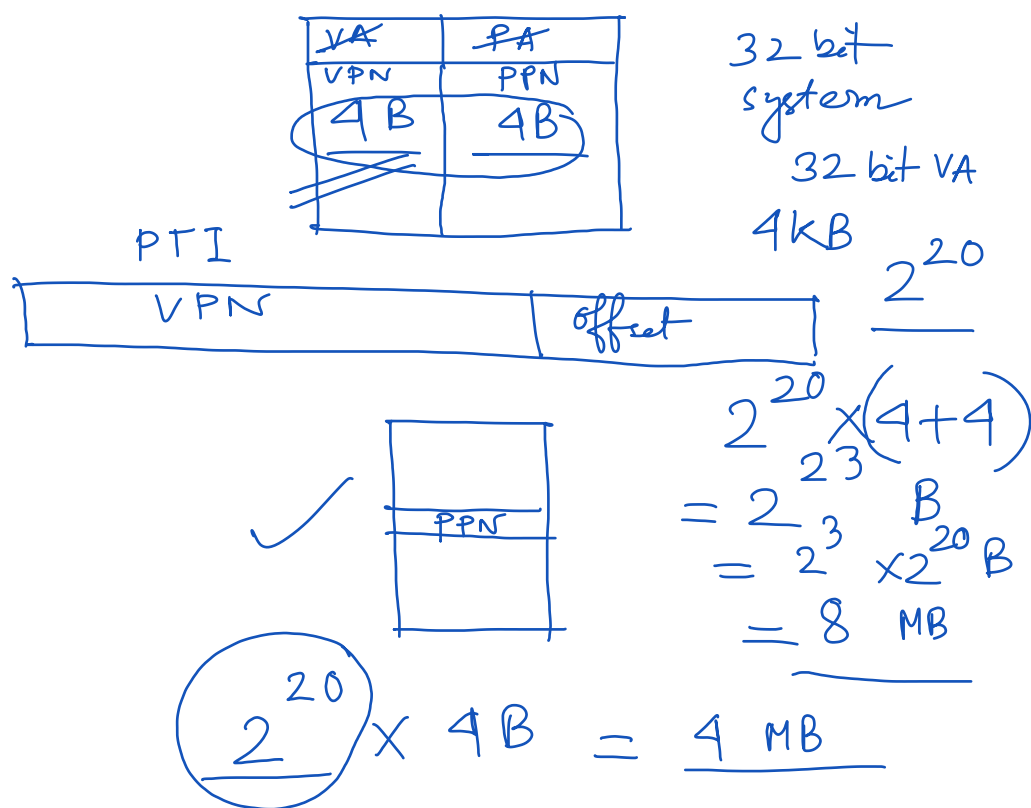 VA PA
VPN PPN
4B 4B
32 bit
system
32 bit VA
4KB
2^20
PTI
VPN offset
2^20 × (4+4)
= 2^23 B
= 2^3 × 2^20 B
= 8 MB
PPN
2^20 × 4B = 4 MB